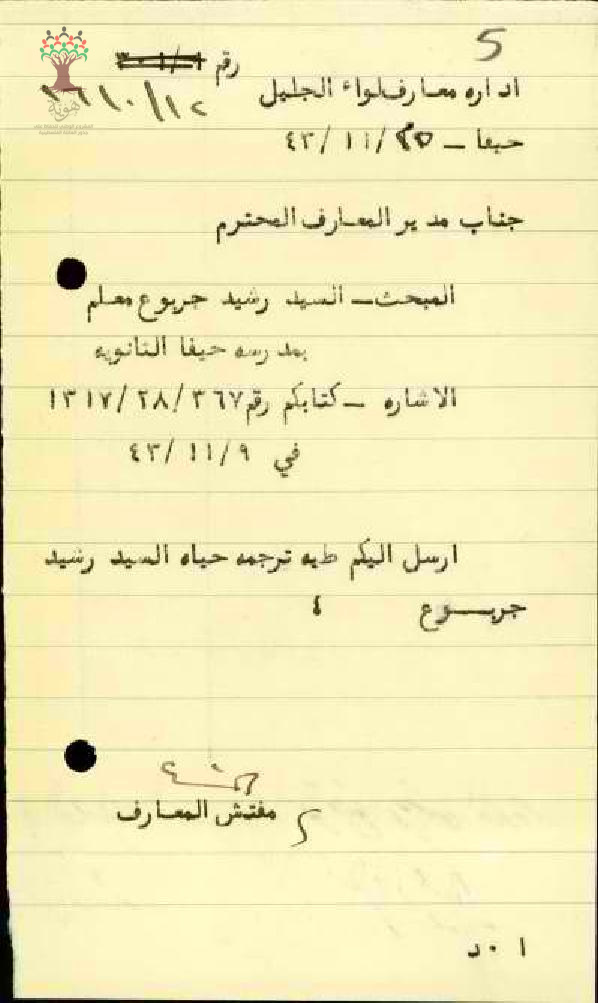 5
رقم
اداره معارف لواء الجليل
حيفا - ٢٥/١١/٤٣
جناب مدير المعارف المحترم
المبحث - السيد رشيد جربوع معلم
بمدرسه حيفا الثانويه
الاشاره - كتابكم رقم ١٣١٧/٢٨/٣٦٧
في ٤٣/١١/٩
ارسل اليكم طيه ترجمه حياه السيد رشيد
جربــوع ٤
مفتش المعارف
ا ٠ د